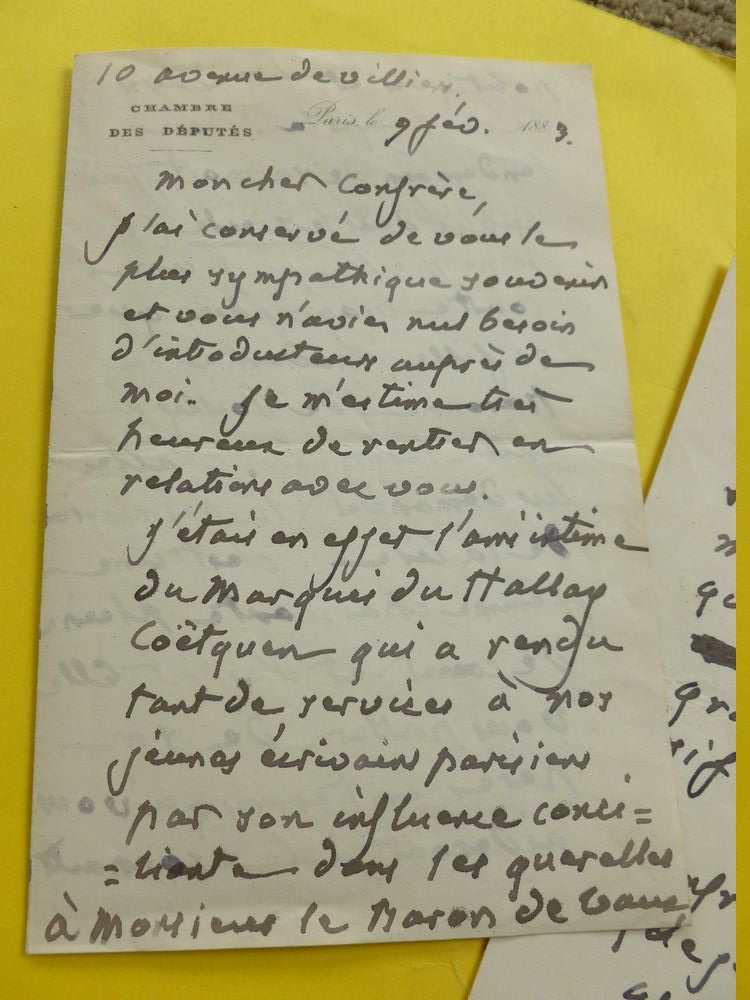 10 avenue de villiers.
CHAMBRE
DES DÉPUTÉS
Paris, le 9 fév. 1883.
Mon cher Confrère,
j'ai conservé de vous le
plus sympathique souvenir
et vous n'aviez nul besoin
d'introducteurs auprès de
moi. Je m'estime très
heureux de rentrer en
relations avec vous.
j'étais en effet l'ami intime
du Marquis du Hallay
Coëtquen qui a rendu
tant de services à nos
jeunes écrivains parisiens
par son influence conci=
=liante dans les querelles
à Monsieur le Baron de Vaux